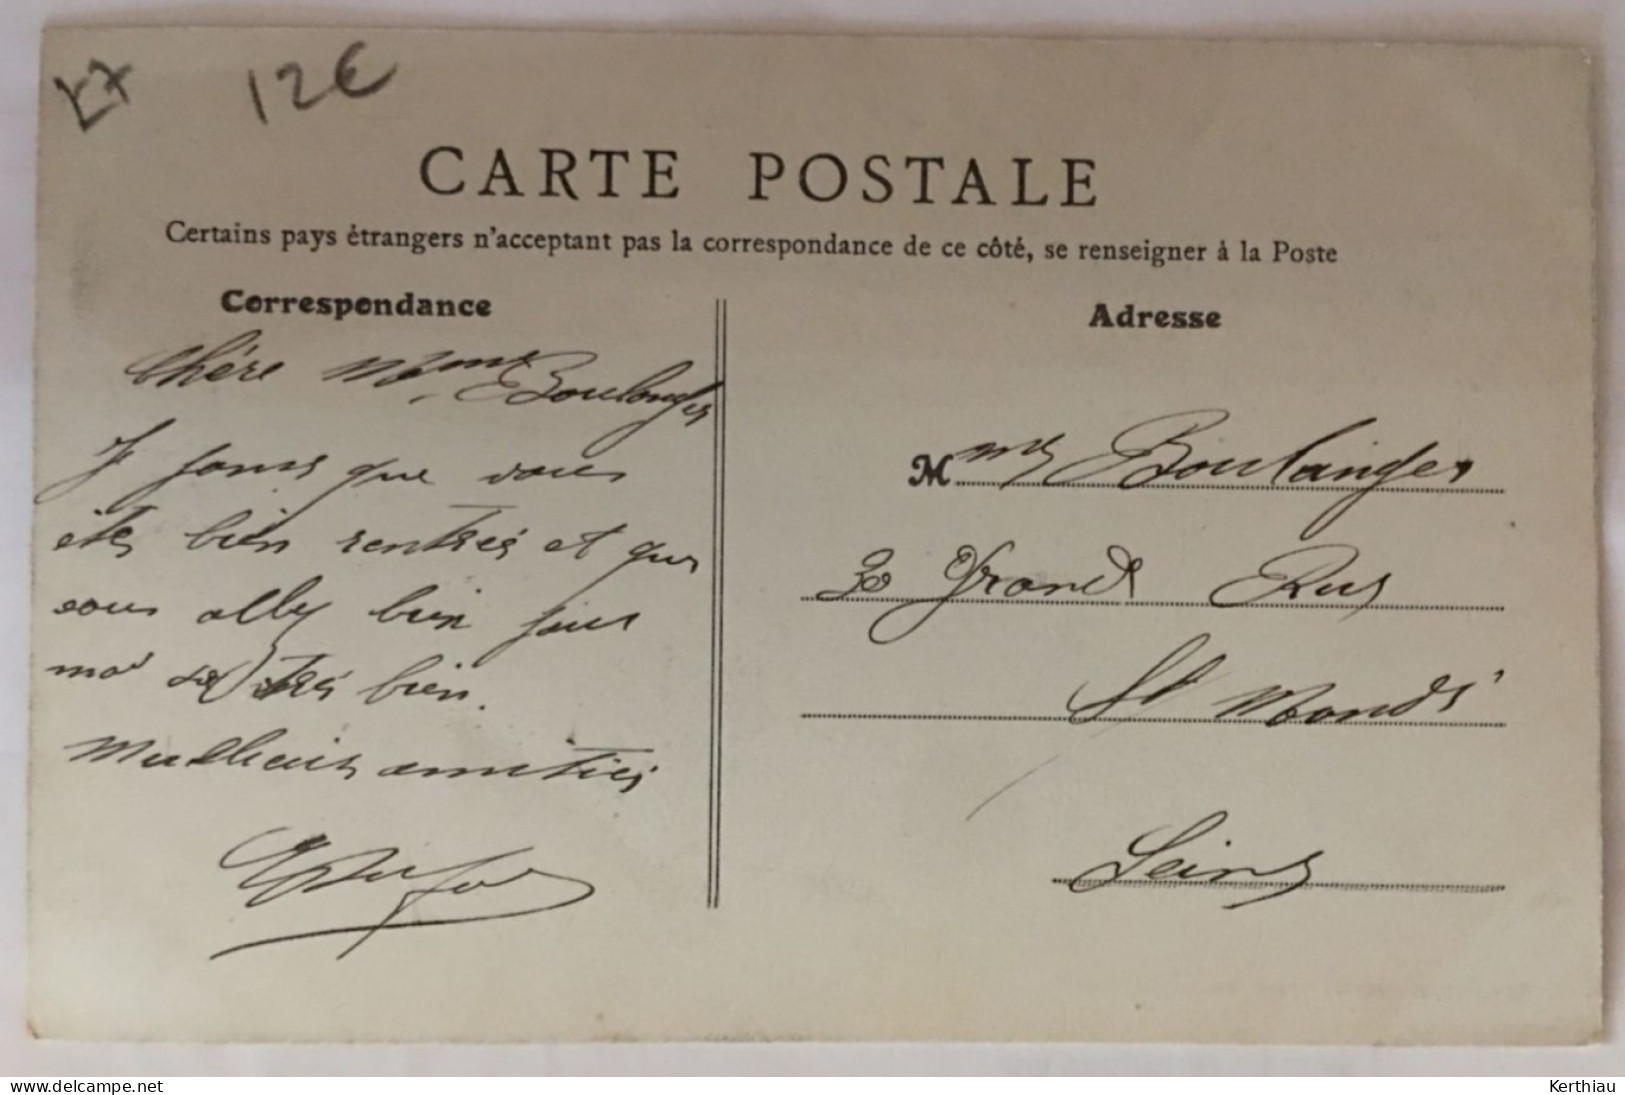 12€
CARTE POSTALE
Certains pays étrangers n'acceptant pas la correspondance de ce côté, se renseigner à la Poste
Correspondance
Chère Mme Boulanger
J que vous
êtes bien rentrés et que
vous allez bien pour
moi très bien.
Meilleures amitiés
Adresse
Mme Boulanger
30 Grande Rue
St Mandé
Seine
www.delcampe.net
Kerthiau